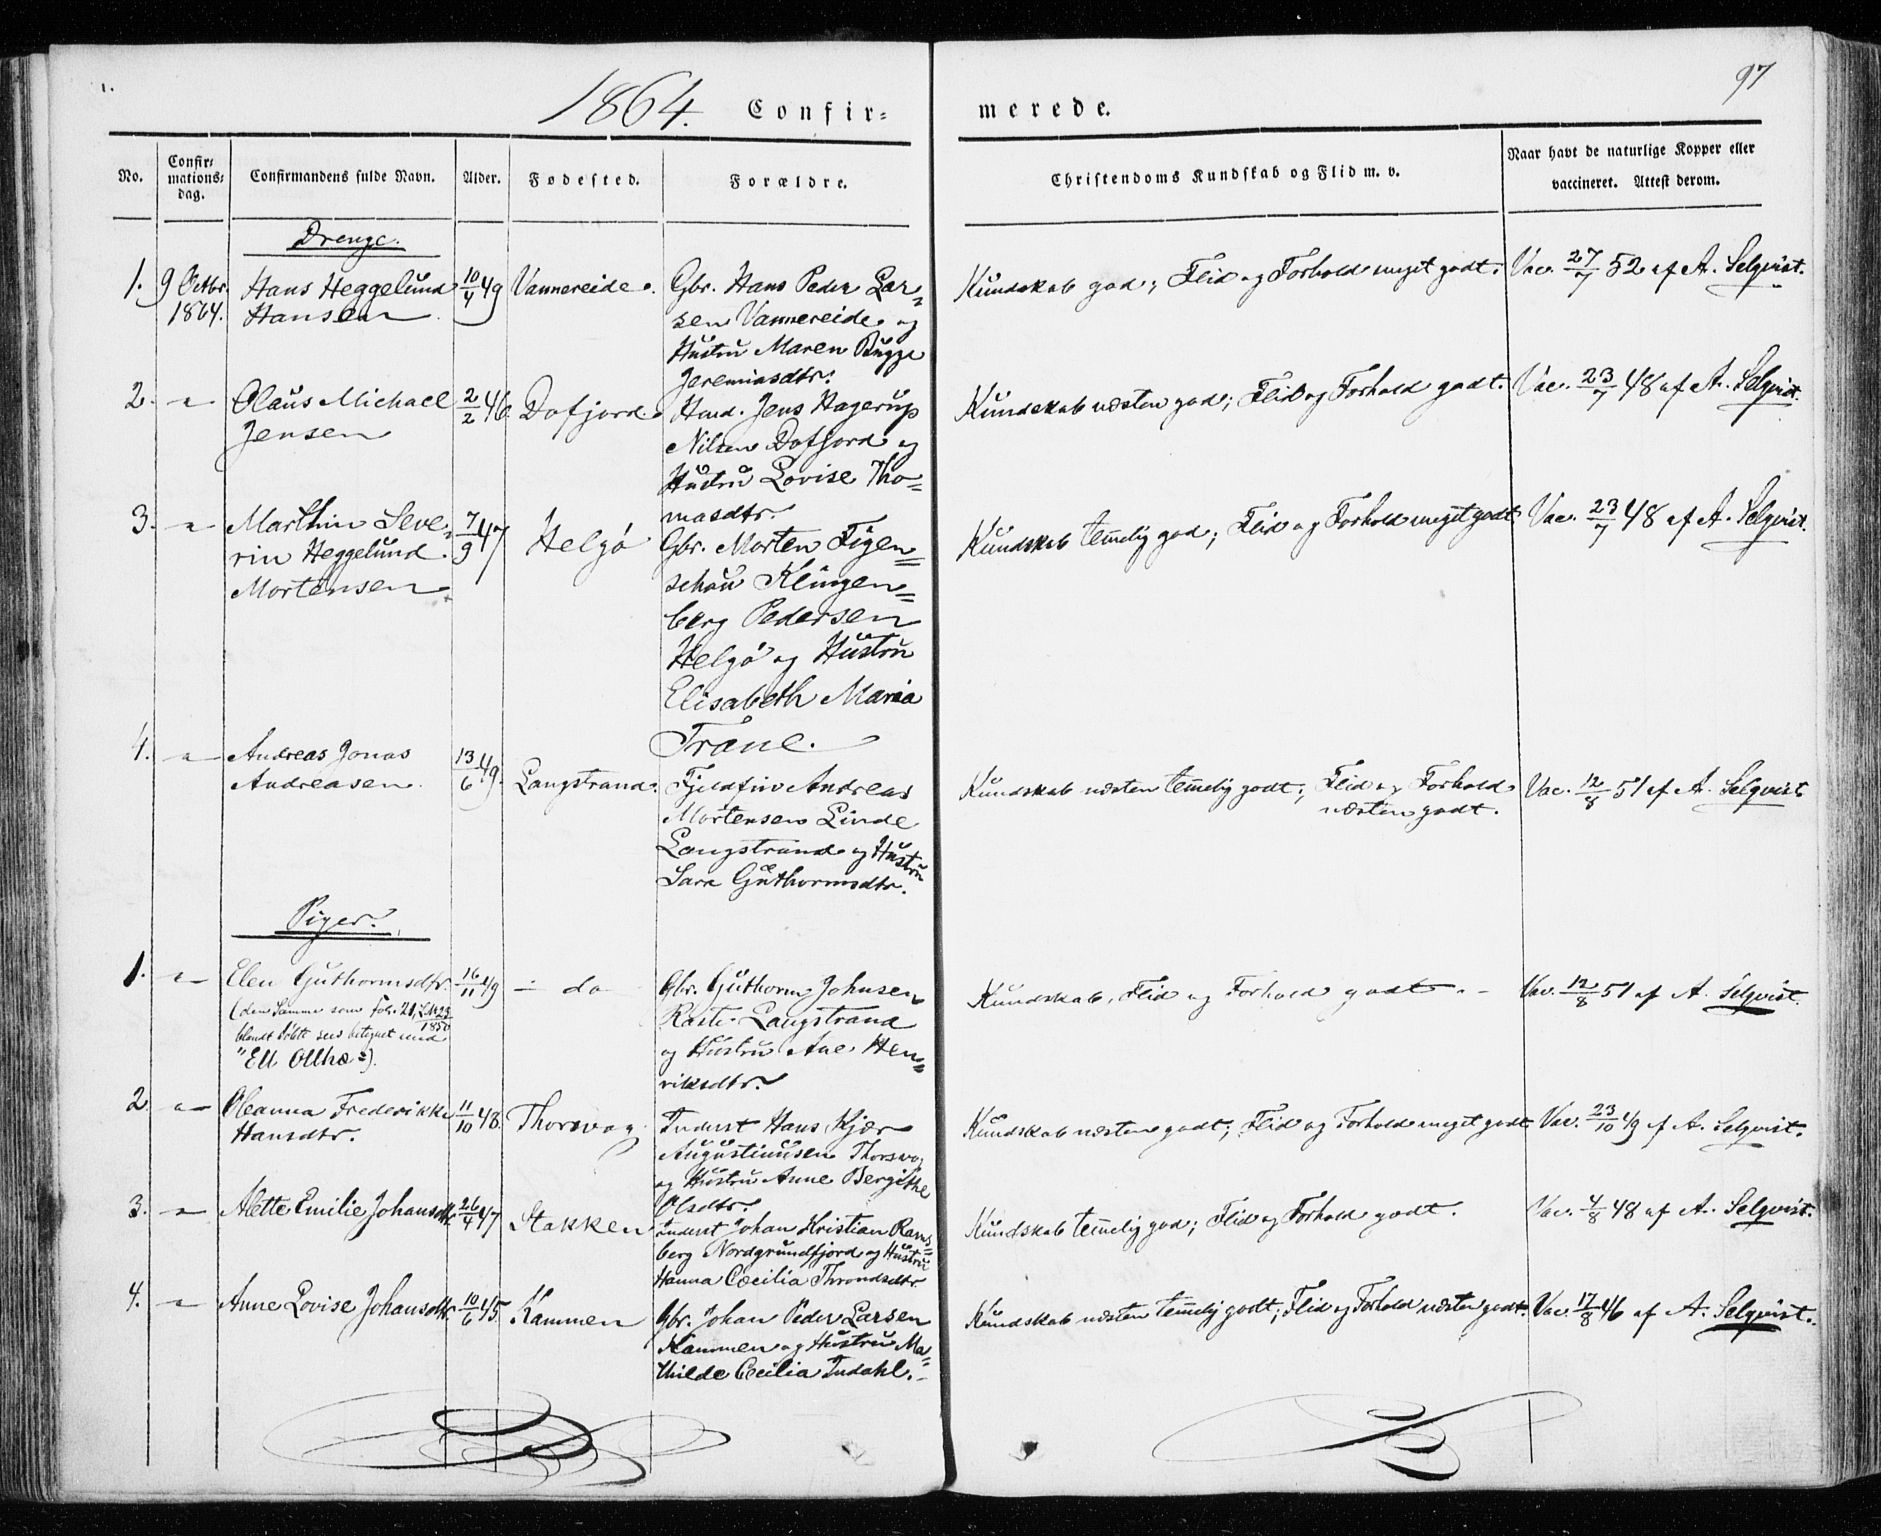 97
1864. Confir=
merede.
No.
Confir=
mations=
dag.
Confirmandens fulde Navn.
Alder.
Fødested.
Forældre.
Christendoms Kundskab og Flid m. v.
Naar havt de naturlige Kopper eller
vaccineret. Attest derom.
Drenge.
1. 9 Octbr. Hans Heggelund 10/4 49 Vannereide. Gbr. Hans Peder Lar= Kundskab god; Flid og Forhold meget godt. Vac. 27/7 52 af A. Selqvist.
1864. Hansen sen Vannereide og
Hustru Maren Bugge
Jeremiasdtr.
2. " Olaus Michael 2/2 46. Dafjord. Hmd. Jens Hagerup Kundskab næsten god; Flid og Forhold godt. Vac. 23/7 48 af A. Selqvist.
Jensen Nilsen Dafjord og
Hustru Lovise Tho=
masdtr.
3. " Marthin Seve= 7/9 47 Helgø Gbr. Morten Figen= Kundskab temelig god; Flid og Forhold meget godt Vac. 23/7 48 af A. Selqvist.
rin Heggelund schou Klingen=
Mortensen berg Pedersen
Helgø og Hustru
Elisabeth Maria
Træne.
4. " Andreas Jonas 13/6 49. Langstrand. Fjeldfin Andreas Kundskab næsten temelig godt; Flid og Forhold Vac. 12/8 51 af A. Selqvist
Andreasen. Mortensen Linde næsten godt.
Langstrand og Hustru
Sara Guthormsdtr.
Piger.
1. " Elen Guthormsdtr. 16/11 49 " do Gbr. Guthorm Johnsen Kundskab, Flid og Forhold godt. Vac. 12/8 51 af A. Selqvist.
(den Samme som Fol. 21,
1850
blandt Døbte sees betegnet med
"Ell Ollha"). Raste Langstrand
og Hustru Ane Hen=
riksdtr.
2. " Oleanna Frederikke 11/10 48. Thorsvog Inderst Hans Kjær Kundskab næsten godt; Flid og Forhold meget godt Vac. 23/10 49 af A. Selqvist.
Hansdtr. Augustinusen Thorsvog
og Hustru Anne Bergithe
Olsdtr.
3. " Alette Emilie Johansdtr. 26/4 47 Stakken Inderst Johan Kristian Rams= Kundskab temelig god; Flid og Forhold godt. Vac. 4/8 48 af A. Selqvist.
berg Nordgrundfjord og Hustru
Hanna Cæcilia Throndsdtr
4. " Anne Lovise Johansdtr. 10/6 45. Kammen Gbr. Johan Peder Larsen Kundskab næsten temelig godt; Flid og Forhold næsten godt. Vac. 17/8 46 af A. Selqvist.
Kammen og Hustru Ma=
thilde Cecilia Indahl.